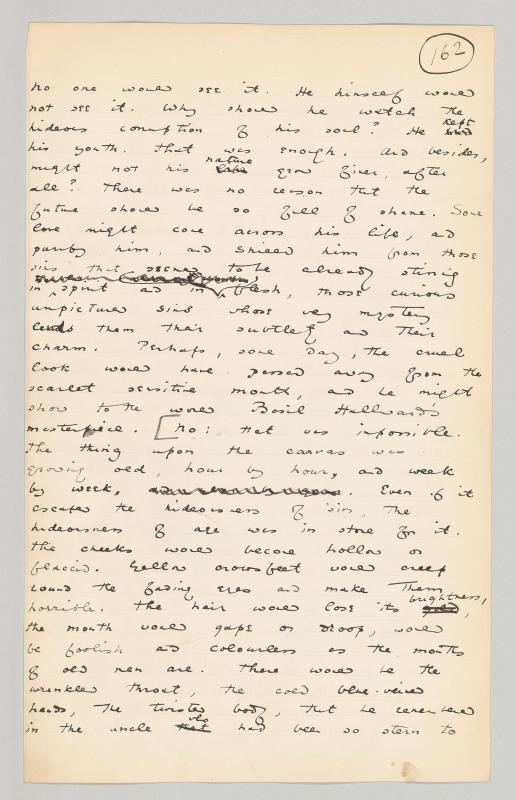 162
no one would see it. He himself would
not see it. Why should he watch the
hideous corruption of his soul? He kept
his youth. That was enough. And besides,
might not his nature grow finer, after
all? There was no reason that the
future should be so full of shame. Some
love might come across his life, and
purify him, and shield him from those
sins that seemed to be already stirring
in spirit and in flesh, those curious
unpictured sins whose very mystery
lends them their subtlety and their
charm. Perhaps, some day, the cruel
look would have passed away from the
scarlet sensitive mouth, and he might
show to the world Basil Hallward's
masterpiece. [No: that was impossible.
The thing upon the canvas was
growing old, hour by hour, and week
by week, . Even if it
escaped the hideousness of sin, the
hideousness of age was in store for it.
The cheeks would become hollow or
flaccid. Yellow crowsfeet would creep
round the fading eyes and make them
horrible. The hair would lose its brightness,
the mouth would gape or droop, would
be foolish and colourless as the mouths
of old men are. There would be the
wrinkled throat, the cold blue-veined
hands, the twisted body, that he remembered
in the uncle who had been so stern to